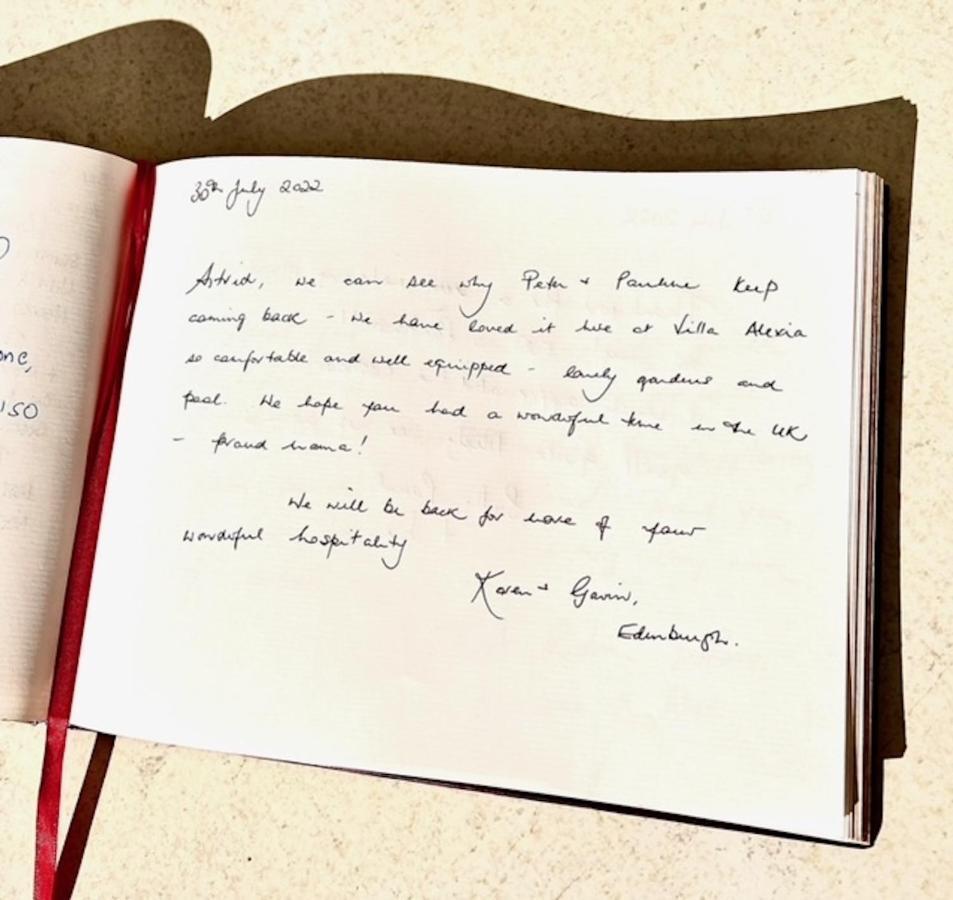 one,
so
30th July 2022
Astrid, we can see why Peter + Pauline keep
coming back - we have loved it here at Villa Alexia
so comfortable and well equipped - lovely gardens and
pool. We hope you had a wonderful time in the UK
- proud mama!
We will be back for more of your
wonderful hospitality
Karen + Gavin,
Edinburgh.